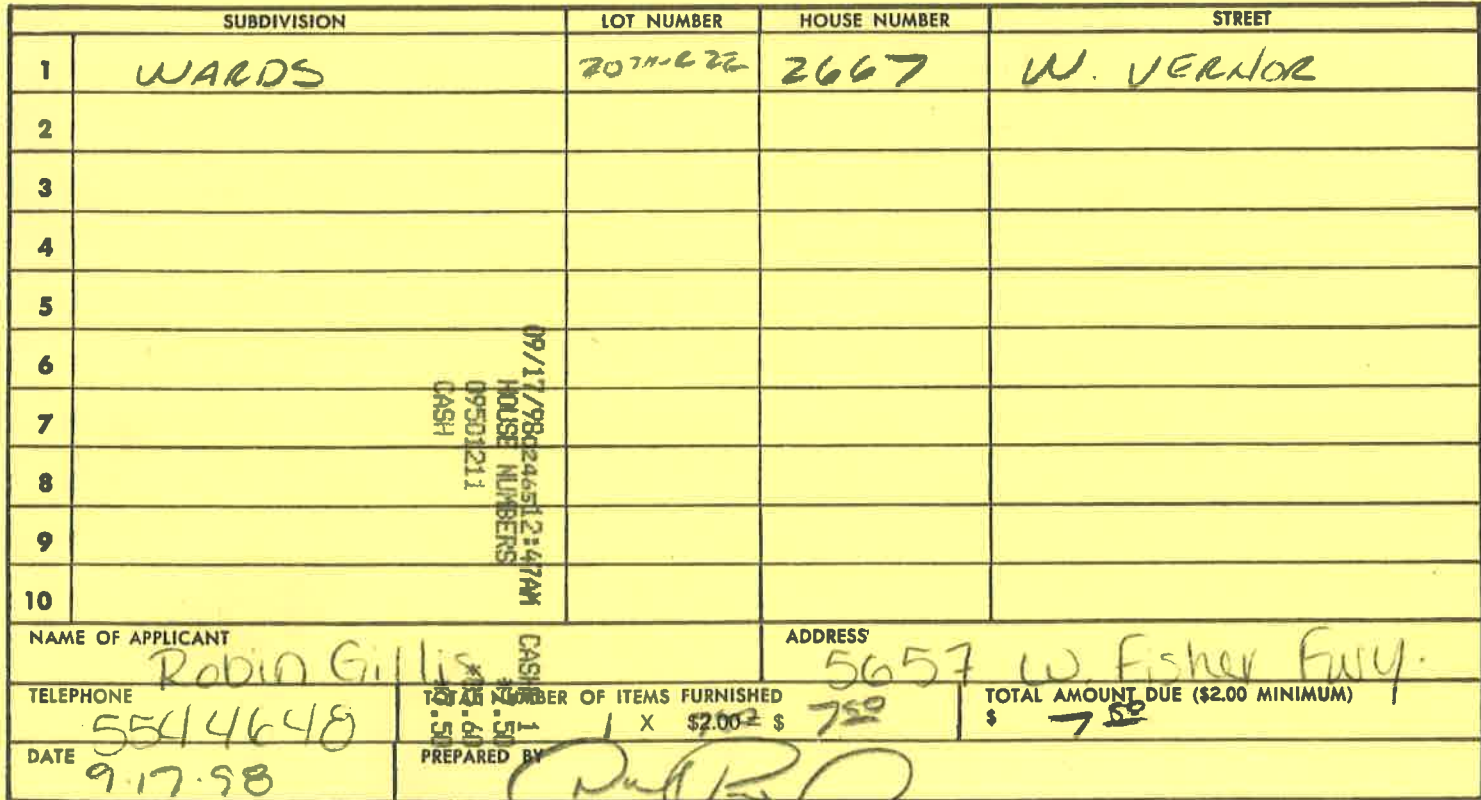 SUBDIVISION LOT NUMBER HOUSE NUMBER STREET
1 WARDS 2667 W. VERNOR
2
3
4
5
6
7
8
9
10
09/17/98 024465 12:47AM CASHR 1
HOUSE NUMBERS *7.50
09501211
CASH
NAME OF APPLICANT
Robin Gillis
ADDRESS
5657 W. Fisher Fwy.
TELEPHONE
5544648
TOTAL NUMBER OF ITEMS FURNISHED
1 X $2.00 $ 7 50
TOTAL AMOUNT DUE ($2.00 MINIMUM)
$ 7 50
DATE
9.17.98
PREPARED BY